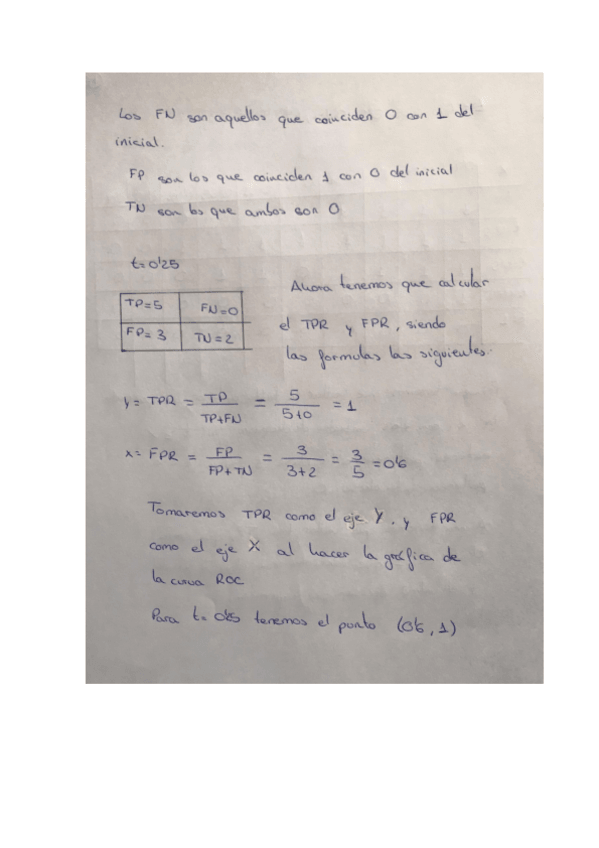 Los FN son aquellos que coinciden 0 con 1 del
inicial.
FP son los que coinciden 1 con 0 del inicial
TN son los que ambos son 0
t=0'25
TP=5 FN=0
FP=3 TN=2
Ahora tenemos que calcular
el TPR y FPR, siendo
las formulas las siguientes:
y= TPR = TP / TP+FN = 5 / 5+0 = 1
x= FPR = FP / FP+TN = 3 / 3+2 = 3 / 5 = 0'6
Tomaremos TPR como el eje Y. y FPR
como el eje X al hacer la gráfica de
la curva ROC
Para t= tenemos el punto (0'6, 1)